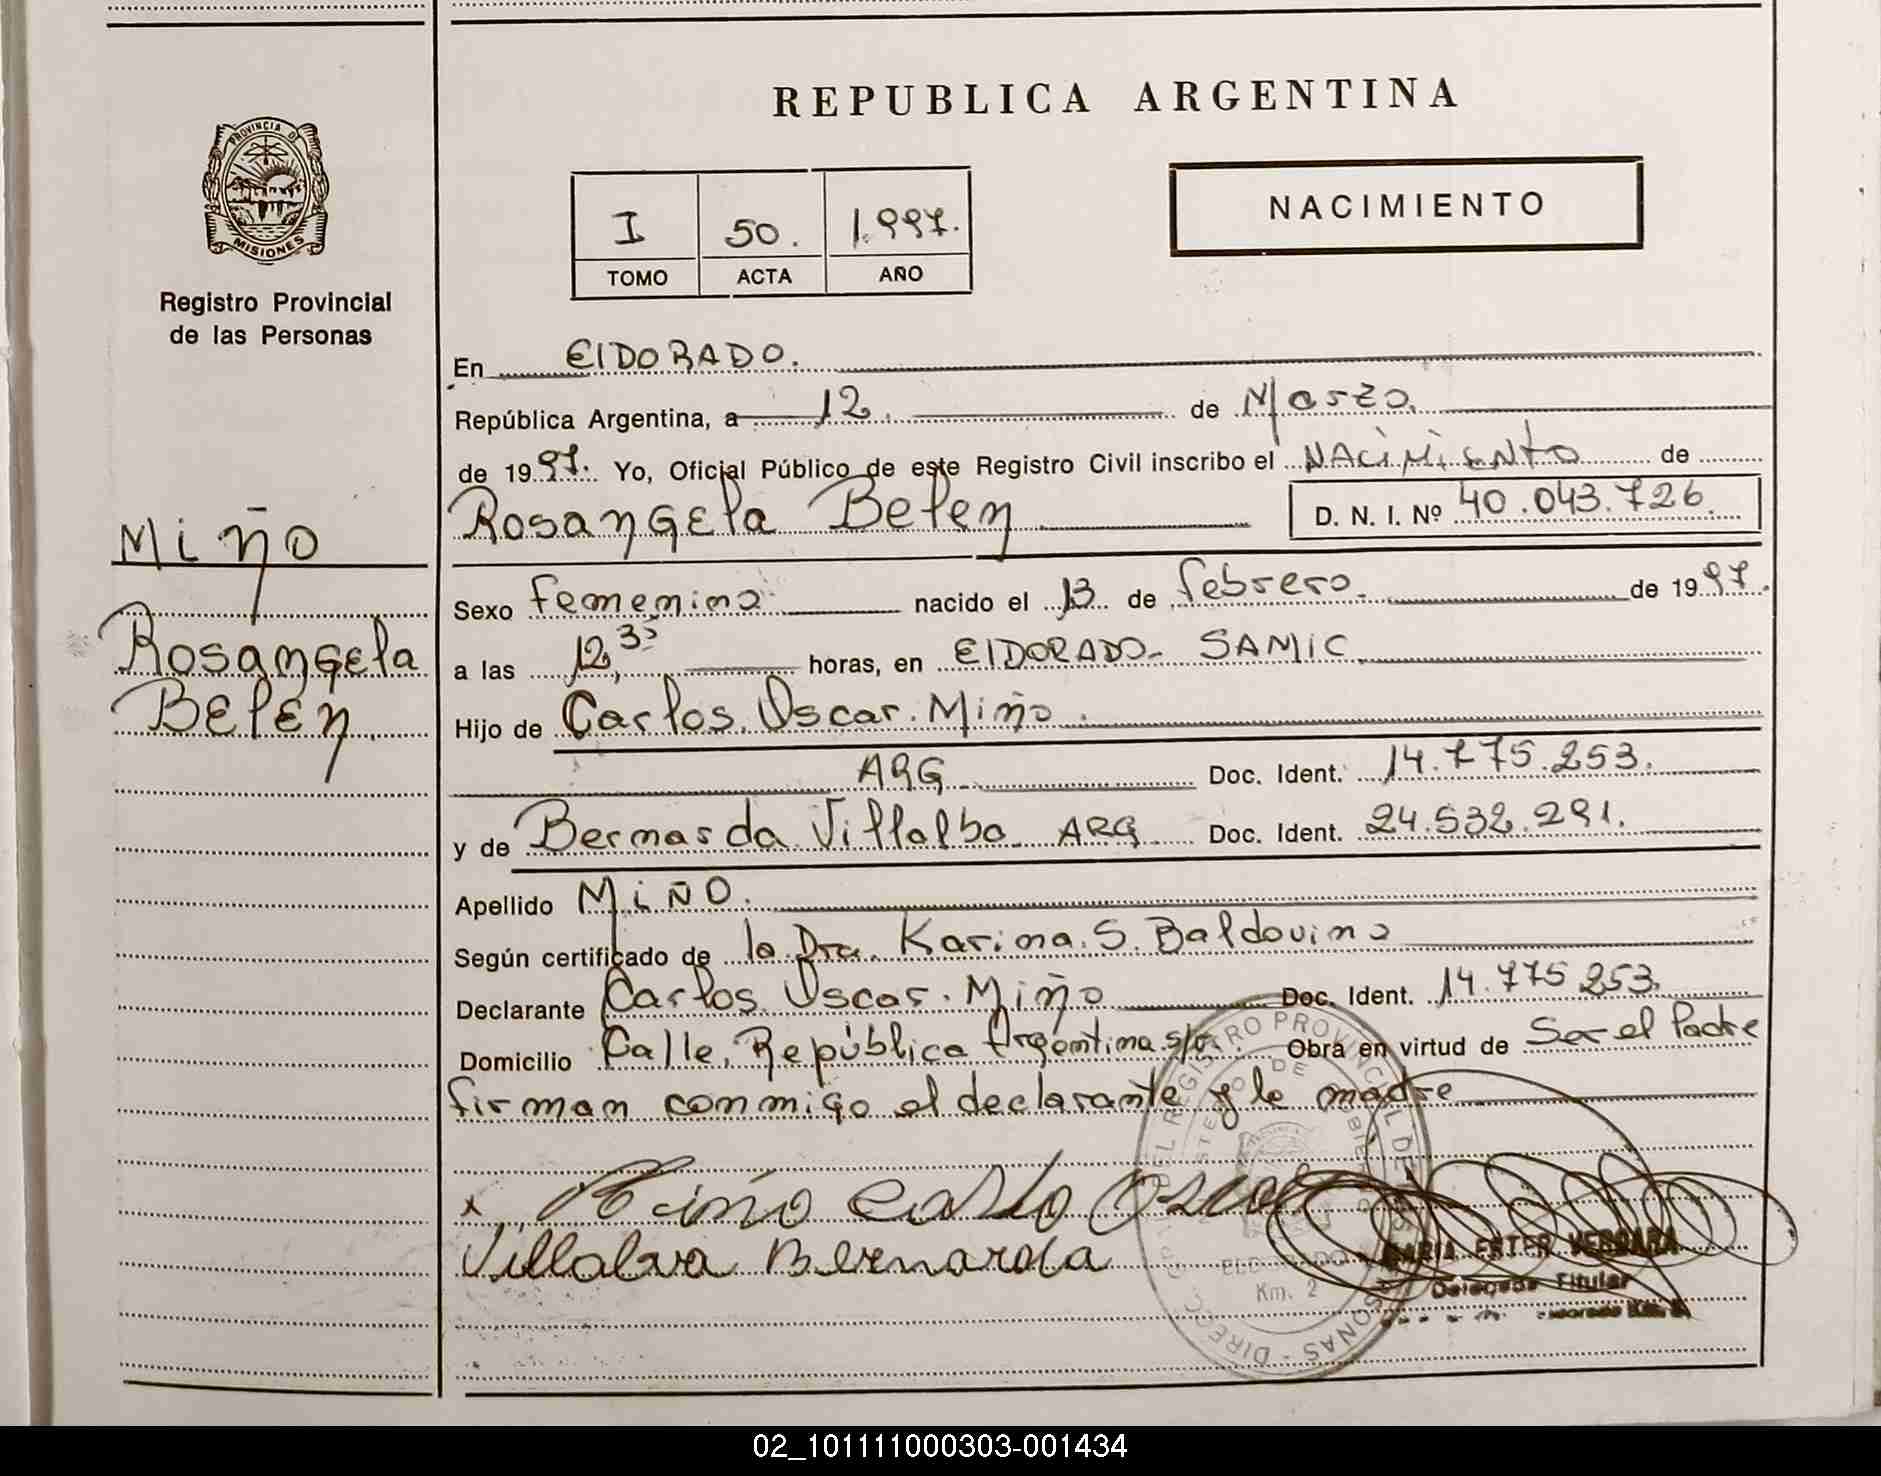 REPUBLICA ARGENTINA
PROVINCIA DE
MISIONES
Registro Provincial
de las Personas
I 50. 1.997.
TOMO ACTA AÑO
NACIMIENTO
En ElDORADO.
República Argentina, a 12. de Marzo.
de 1997. Yo, Oficial Público de este Registro Civil inscribo el NACIMIENTO de
Rosangela Belen D. N. I. Nº 40.043.726.
Miño
Rosangela
Belen
Sexo femenino nacido el 13 de febrero. de 1997.
a las 12,35 horas, en ElDORADO- SAMIC.
Hijo de Carlos Oscar Miño.
ARG Doc. Ident. 14.775.253.
y de Bernarda Villalba ARG Doc. Ident. 24.532.291.
Apellido MiÑO.
Según certificado de la Dra. Karina S. Baldovino
Declarante Carlos Oscar Miño Doc. Ident. 14.775.253.
Domicilio Calle República Argentina s/n. Obra en virtud de Ser el Padre
firman conmigo el declarante y la madre
x Miño Carlo Oscar
Villalva Bernarda
MARIA ESTER VERGARA
Delegada Titular
Km. 2
02_101111000303-001434